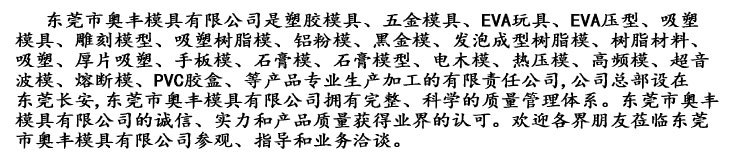 东莞市奥丰模具有限公司是塑胶模具、五金模具、EVA玩具、EVA压型、吸塑
模具、雕刻模型、吸塑树脂模、铝粉模、黑金模、发泡成型树脂模、树脂材料、
吸塑、厚片吸塑、手板模、石膏模、石膏模型、电木模、热压模、高频模、超音
波模、熔断模、PVC胶盒、等产品专业生产加工的有限责任公司,公司总部设在
东莞长安,东莞市奥丰模具有限公司拥有完整、科学的质量管理体系。东莞市奥丰
模具有限公司的诚信、实力和产品质量获得业界的认可。欢迎各界朋友莅临东莞
市奥丰模具有限公司参观、指导和业务洽谈。